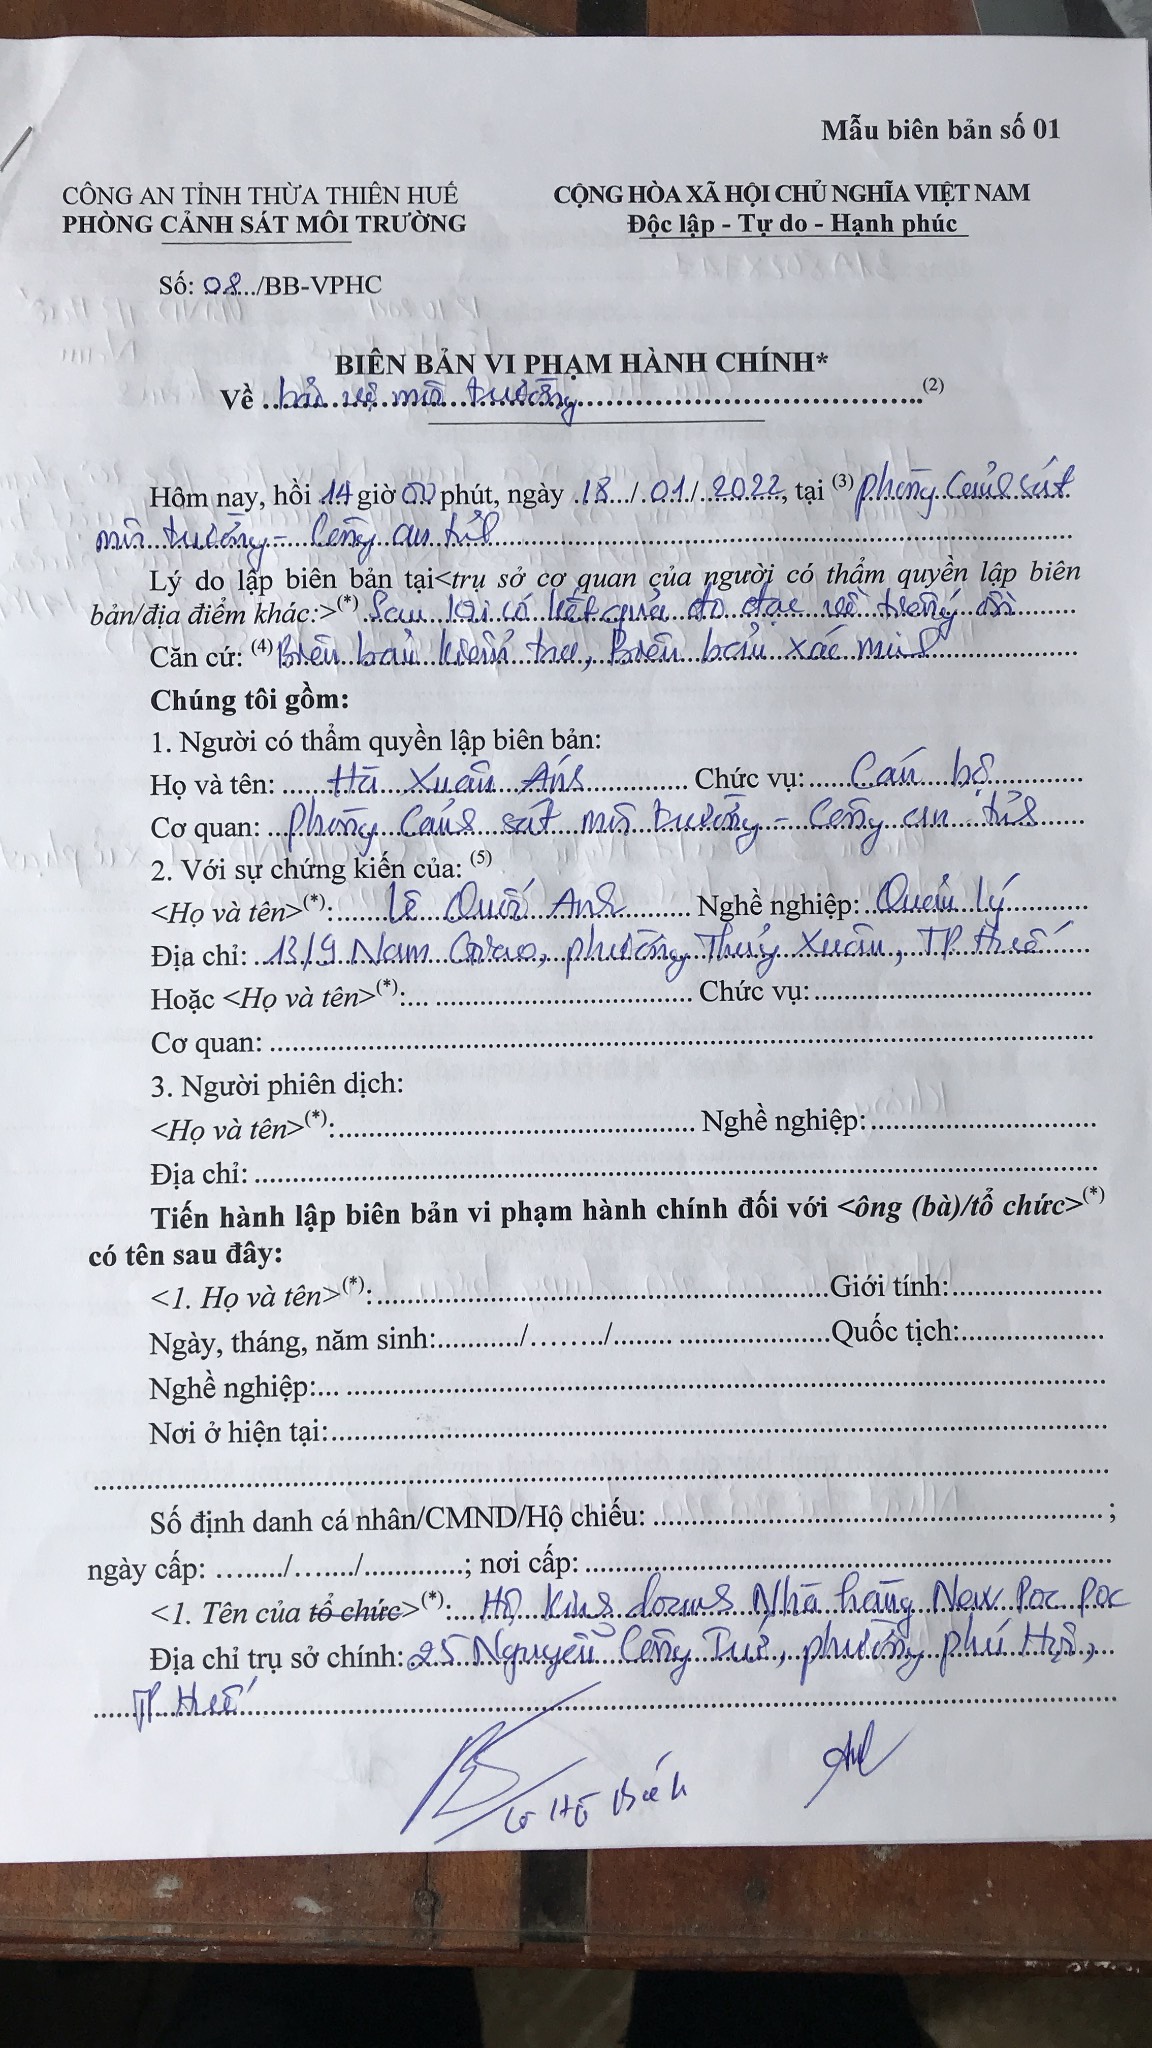 Mẫu biên bản số 01
CÔNG AN TỈNH THỪA THIÊN HUẾ
PHÒNG CẢNH SÁT MÔI TRƯỜNG
CỘNG HÒA XÃ HỘI CHỦ NGHĨA VIỆT NAM
Độc lập - Tự do - Hạnh phúc
Số: 08.../BB-VPHC
BIÊN BẢN VI PHẠM HÀNH CHÍNH*
Về ...bảo vệ môi trường...(2)
Hôm nay, hồi 14 giờ 00 phút, ngày 18/01/2022, tại (3) phòng Cảnh sát
môi trường - Công an tỉnh
Lý do lập biên bản tại<trụ sở cơ quan của người có thẩm quyền lập biên
bản/địa điểm khác:>(*) Sau khi có kết quả đo đạc về tiếng ồn
Căn cứ: (4) Biên bản kiểm tra, Biên bản xác minh
Chúng tôi gồm:
1. Người có thẩm quyền lập biên bản:
Họ và tên: Hà Xuân Ánh Chức vụ: Cán bộ
Cơ quan: phòng Cảnh sát môi trường - Công an tỉnh
2. Với sự chứng kiến của: (5)
<Họ và tên>(*): Lê Quốc Anh Nghề nghiệp: Quản lý
Địa chỉ: 13/9 Nam Giao, phường Thuỷ Xuân, TP. Huế
Hoặc <Họ và tên>(*):... Chức vụ:
Cơ quan:
3. Người phiên dịch:
<Họ và tên>(*): Nghề nghiệp:
Địa chỉ:
Tiến hành lập biên bản vi phạm hành chính đối với <ông (bà)/tổ chức>(*)
có tên sau đây:
<1. Họ và tên>(*): Giới tính:
Ngày, tháng, năm sinh:........../......../........ Quốc tịch:
Nghề nghiệp:...
Nơi ở hiện tại:
Số định danh cá nhân/CMND/Hộ chiếu: ;
ngày cấp: ......../......../............; nơi cấp:
<1. Tên của tổ chức>(*): Hộ kinh doanh Nhà hàng New Poc Poc
Địa chỉ trụ sở chính: 25 Nguyễn Công Trứ, phường phú Hội,
TP. Huế